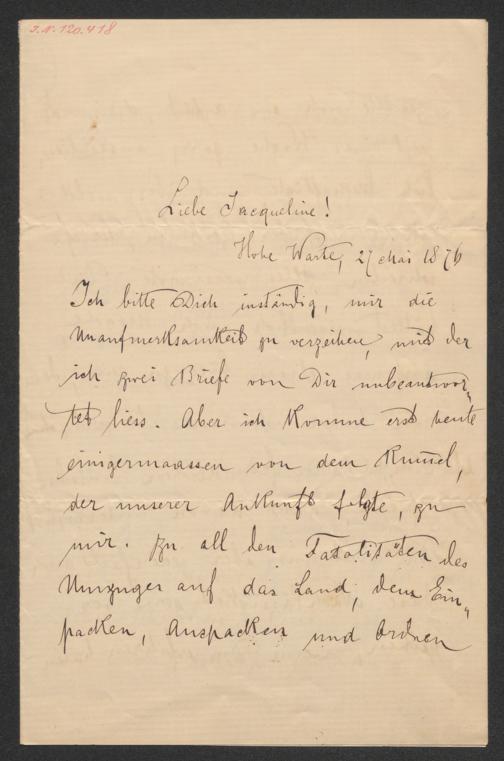 J.N. 120.418
Liebe Jacqueline!
Hohe Warte, 27 Mai 1876
Ich bitte Dich inständig, mir die
Unaufmerksamkeit zu verzeihen, mit der
ich zwei Briefe von Dir unbeantwor-
tet liess. Aber ich komme erst heute
einigermaassen von dem Rummel,
der unserer Ankunft folgte, zu
mir. Zu all den Fatalitäten des
Umzuges auf das Land, dem Ein-
packen, Auspacken und Ordnen